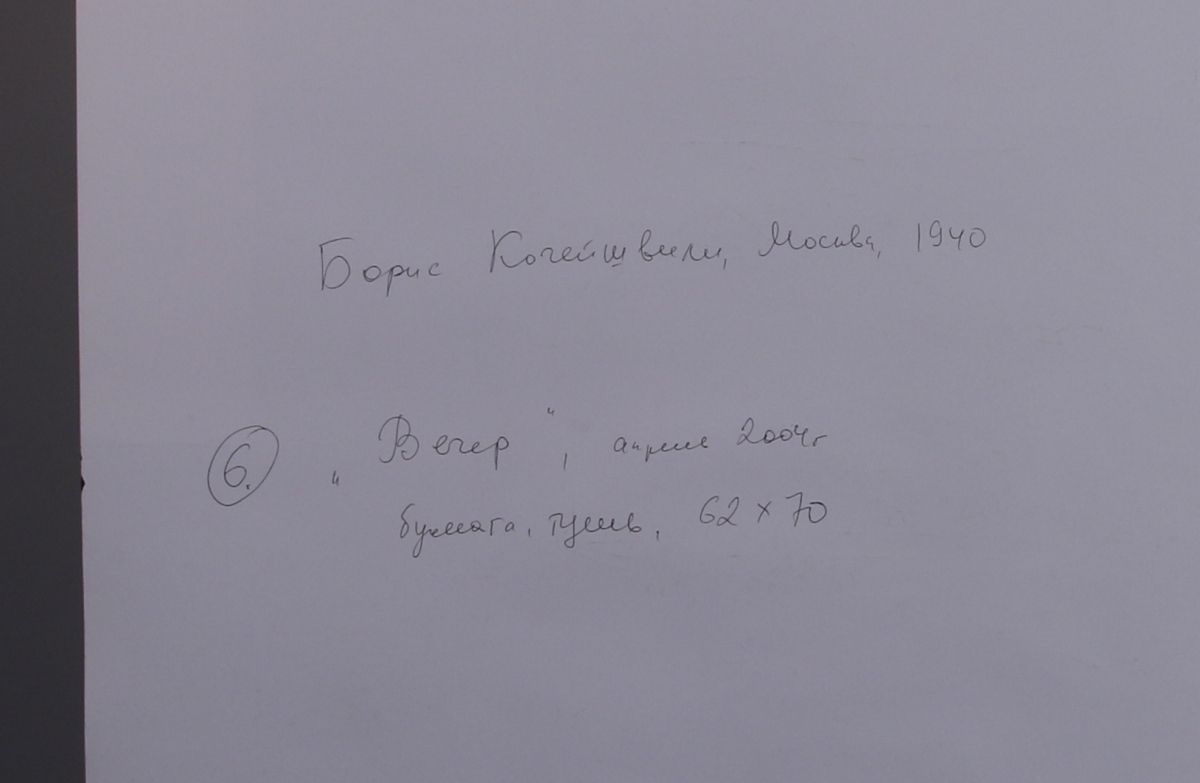 Борис Кочейшвили, Москва, 1940
6. „Вечер“, апрель 2004г
бумага, тушь, 62 х 70